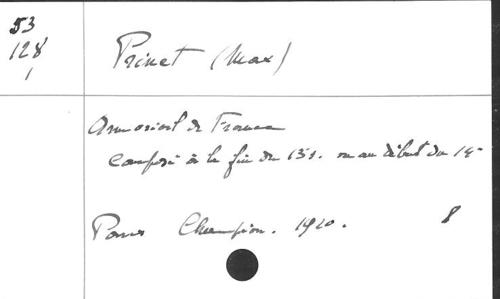 53
128
1
Prinet (Max)
Armorial de France
Composé à la fin du 13s. ou au début du 14e
Paris Champion. 1920. 8